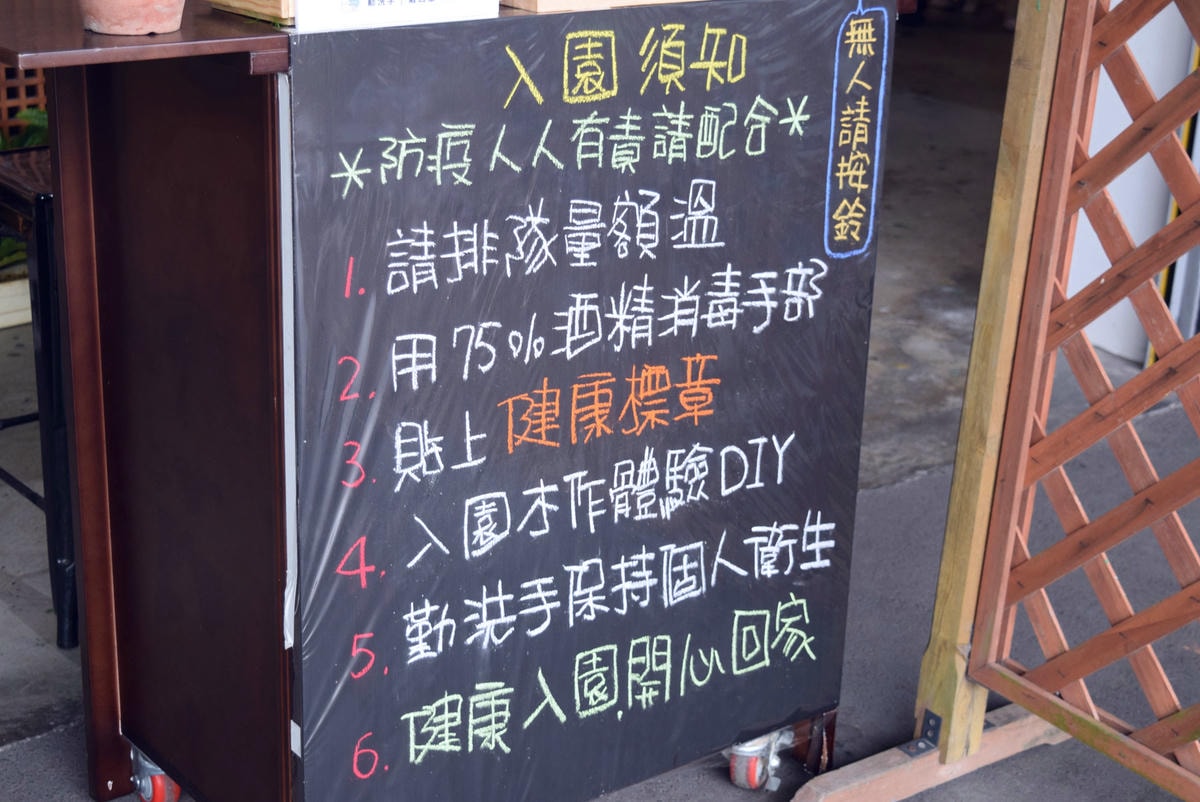 入園須知
*防疫人人有責請配合*
1. 請排隊量額溫
2. 用75%酒精消毒手部
3. 貼上健康標章
4. 入園木作體驗DIY
5. 勤洗手保持個人衛生
6. 健康入園,開心回家
無人請按鈴